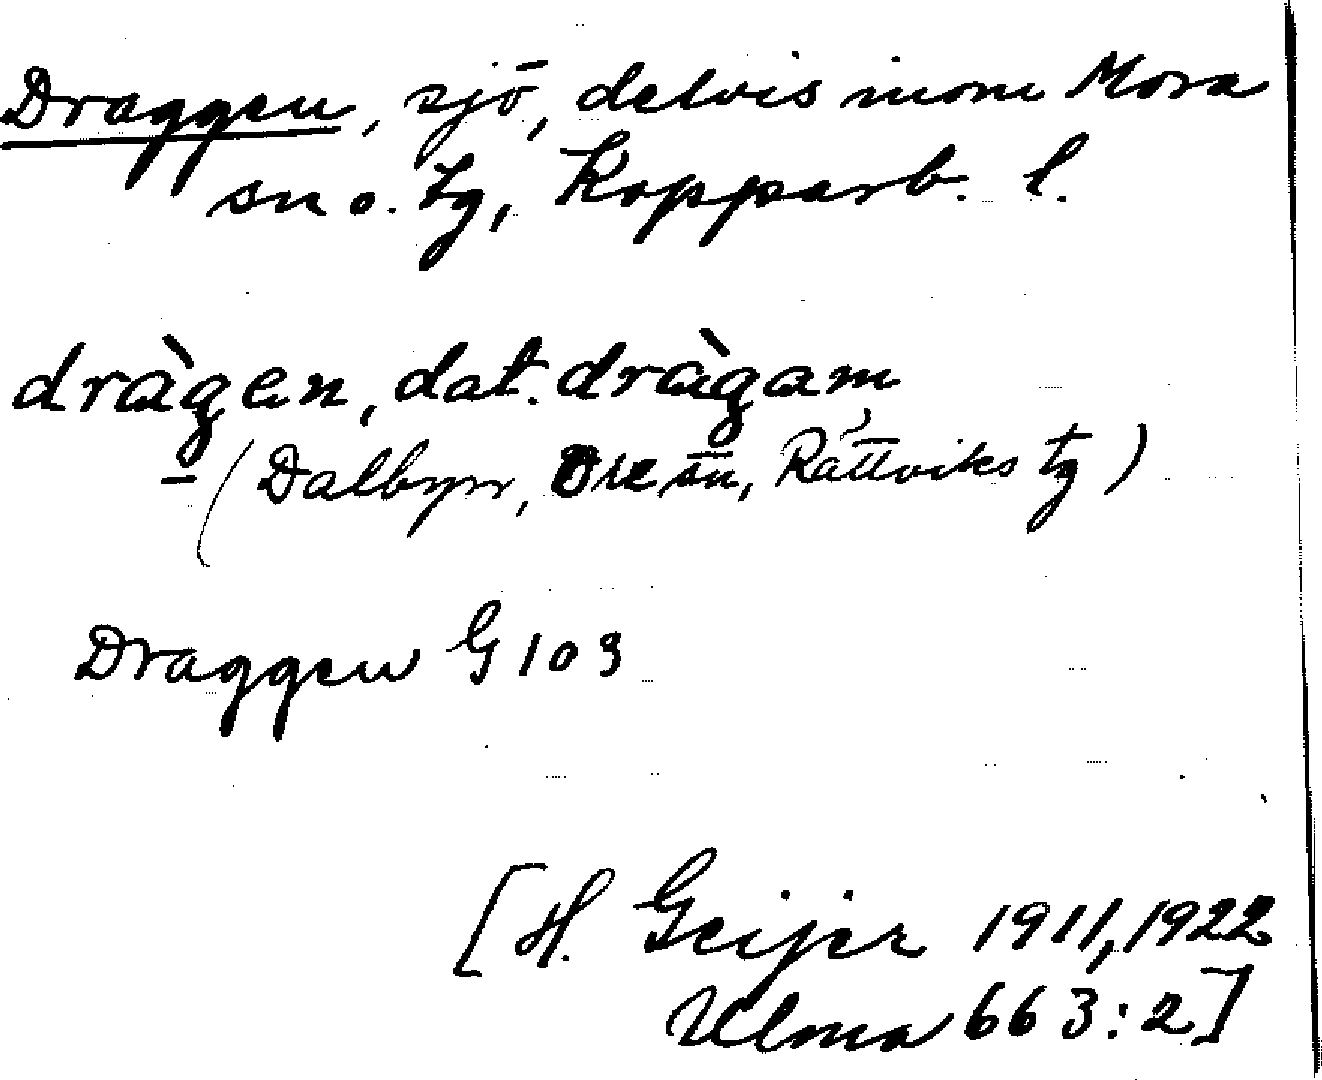 Draggen, sjö, delvis inom Mora
sn o. tg, Kopparb. l.
dràgen, dat. dràgam
– (Dalbyn, Ore sn, Rättviks tg)
Draggen G 103
[H. Geijer 1911, 1922
Ulma 663:2]